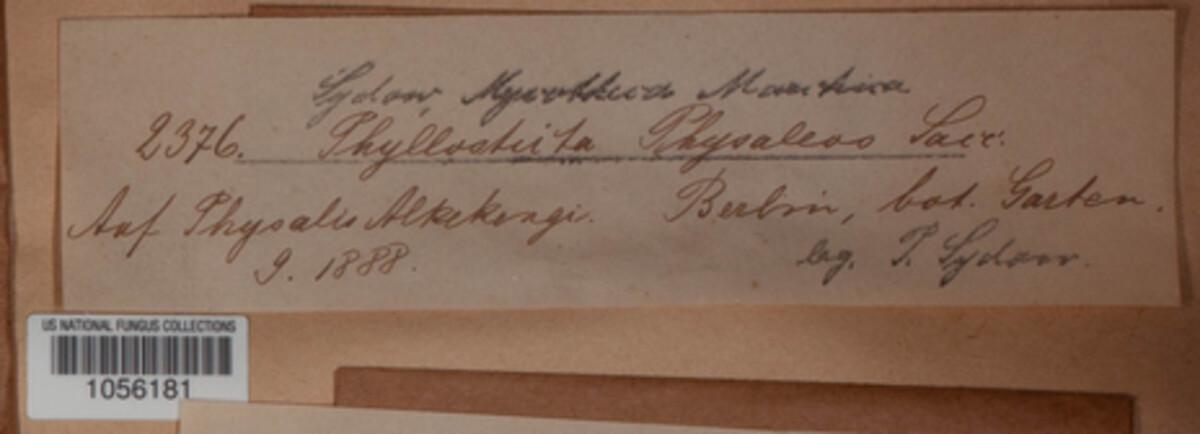 Sydow, Mycotheca Marchica
2376. Phyllosticta Physaleos Sacc.
Auf Physalis Alkekengi. Berlin, bot. Garten.
9. 1888. leg. P. Sydow.
US NATIONAL FUNGUS COLLECTIONS
1056181